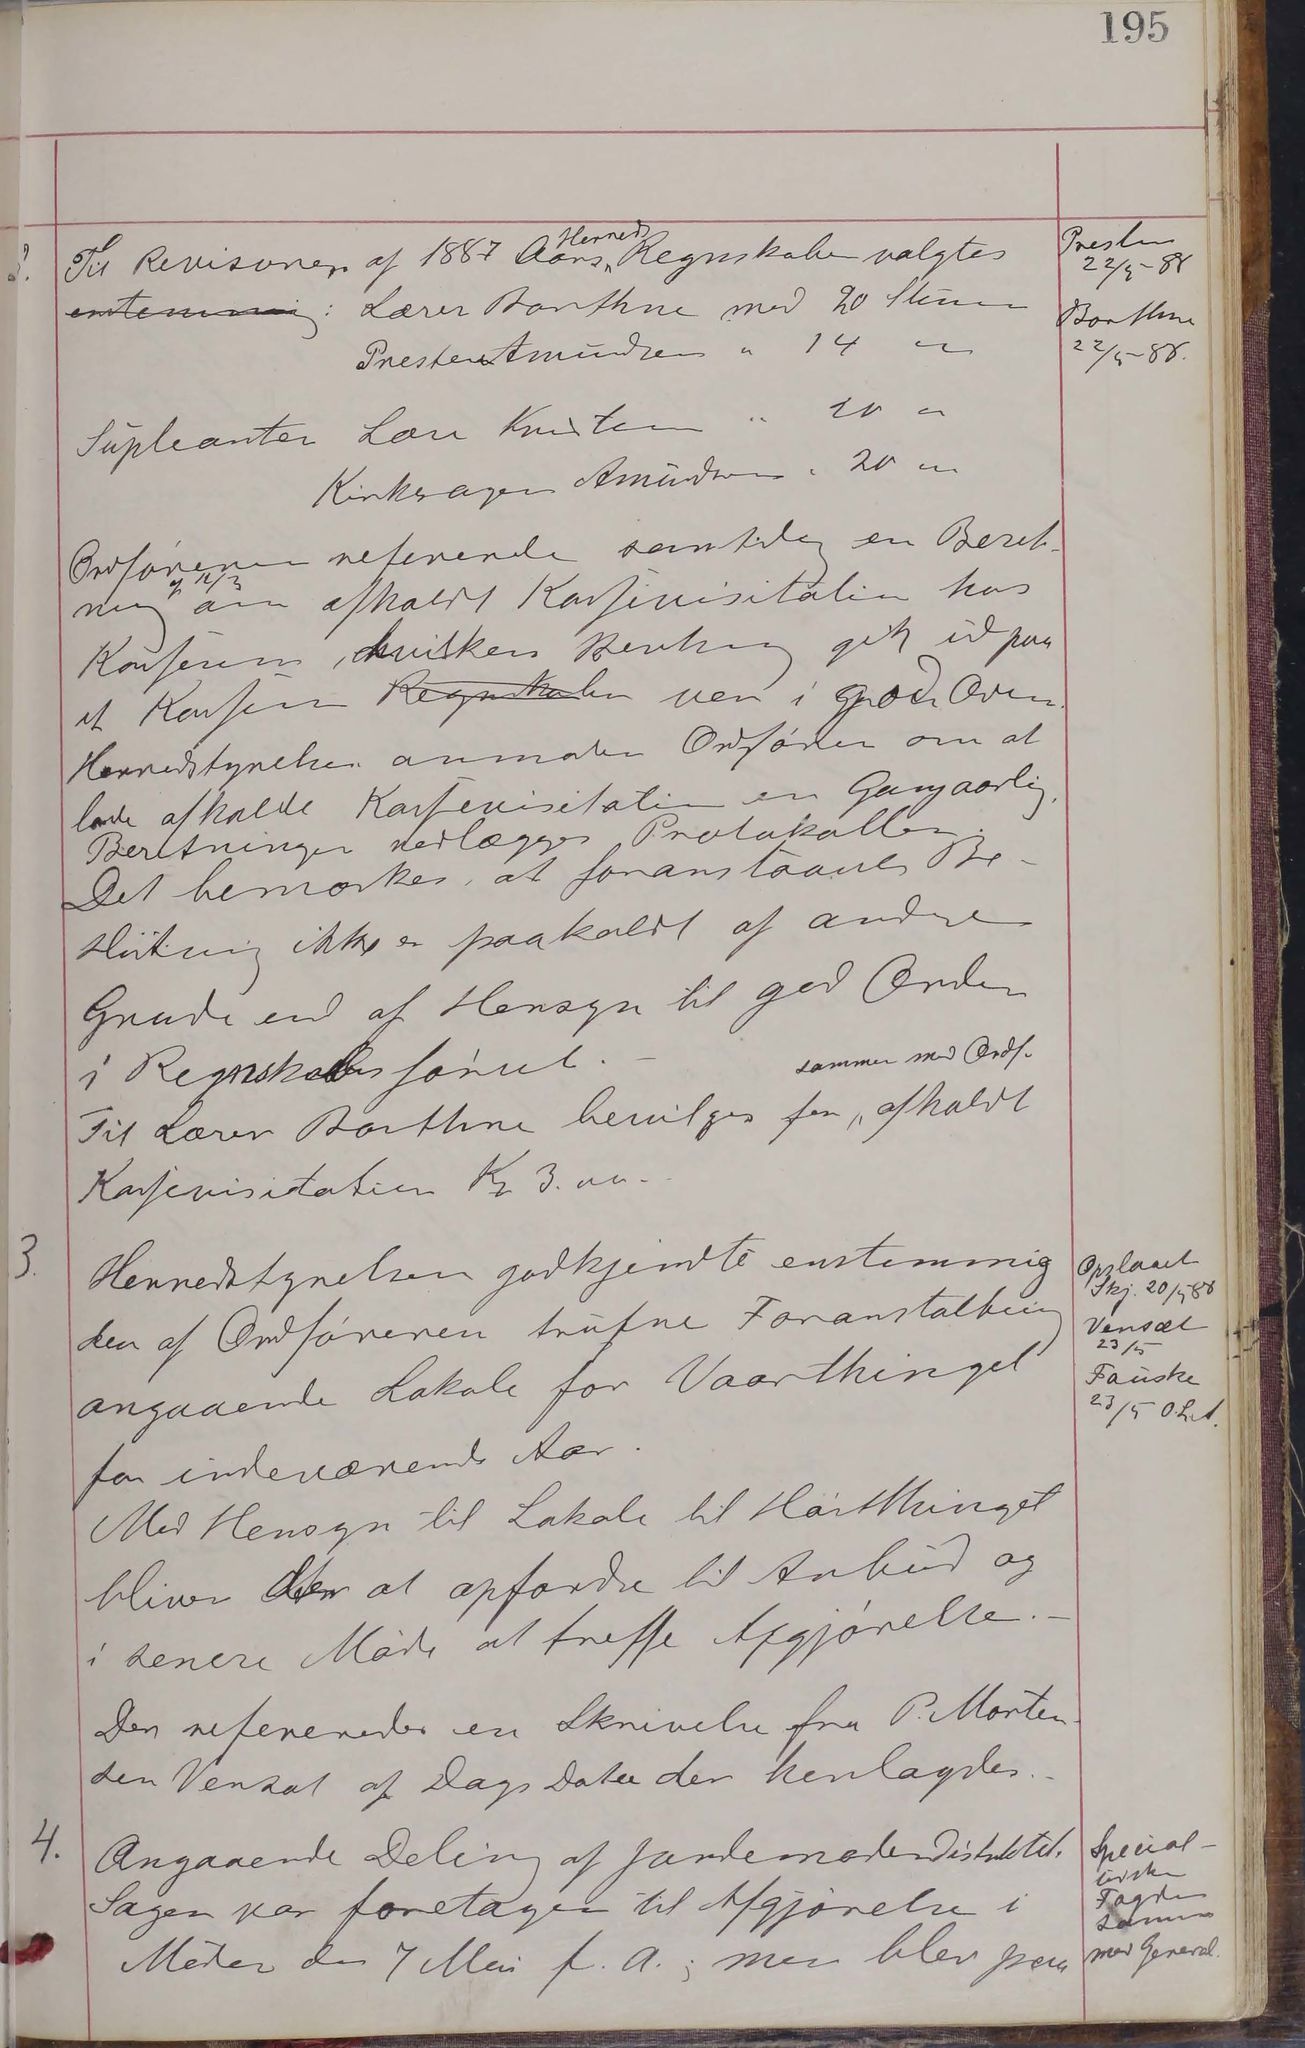 195
2.
Til Revisorer af 1887 Aars Herreds Regnskaber valgtes
enstemmig: Lærer Barthne med 20 Stemmer
Presten Amundsen " 14 "
Supleanter Lærer Kristensen " 20 "
Kirkesanger Amundsen " 20 "
Presten
22/5-88
Barthne
22/5-88.
Ordføreren refererede samtidig en Beret-
ning af 12/3 om afholdt Kassevisitation hos
Kasseren, hvilken Beretning gik ud paa
at Kassen Regnskaben var i god Orden.
Herredstyrelsen anmoder Ordføreren om at
lade afholde Kassevisitation en Gang aarlig.
Beretningen vedlægges Protokollen.
Det bemærkes, at foranstaaende Be-
slutning ikke er paakaldt af andre
Grunde end af Hensyn til god Orden
i Regnskabsførsel.-
Til Lærer Barthne bevilges for sammen med Ordf. afholdt
Kassevisitation Kr 3.00.-
3.
Herredstyrelsen godkjendte enstemmig
den af Ordføreren trufne Foranstaltning
angaaende Lokale for Vaarthinget
for indeværende Aar.
Med Hensyn til Lokale til Høstthinget
bliver der at opfordre til Anbud og
i senere Møde at treffe Afgjørelse.-
Der refereredes en Skrivelse fra P. Morten-
sen Vensæt af Dags Dato der henlagdes.-
Opslaaet
Skj. 20/5 88
Vensæt
23/5
Fauske
23/5
4.
Angaaende Deling af Jordemoderdistriktet.
Sagen var foretagen til Afgjørelse i
Mødet den 7 Mai f. A.; men blev paa
Special-
Fagden
samme
med General.